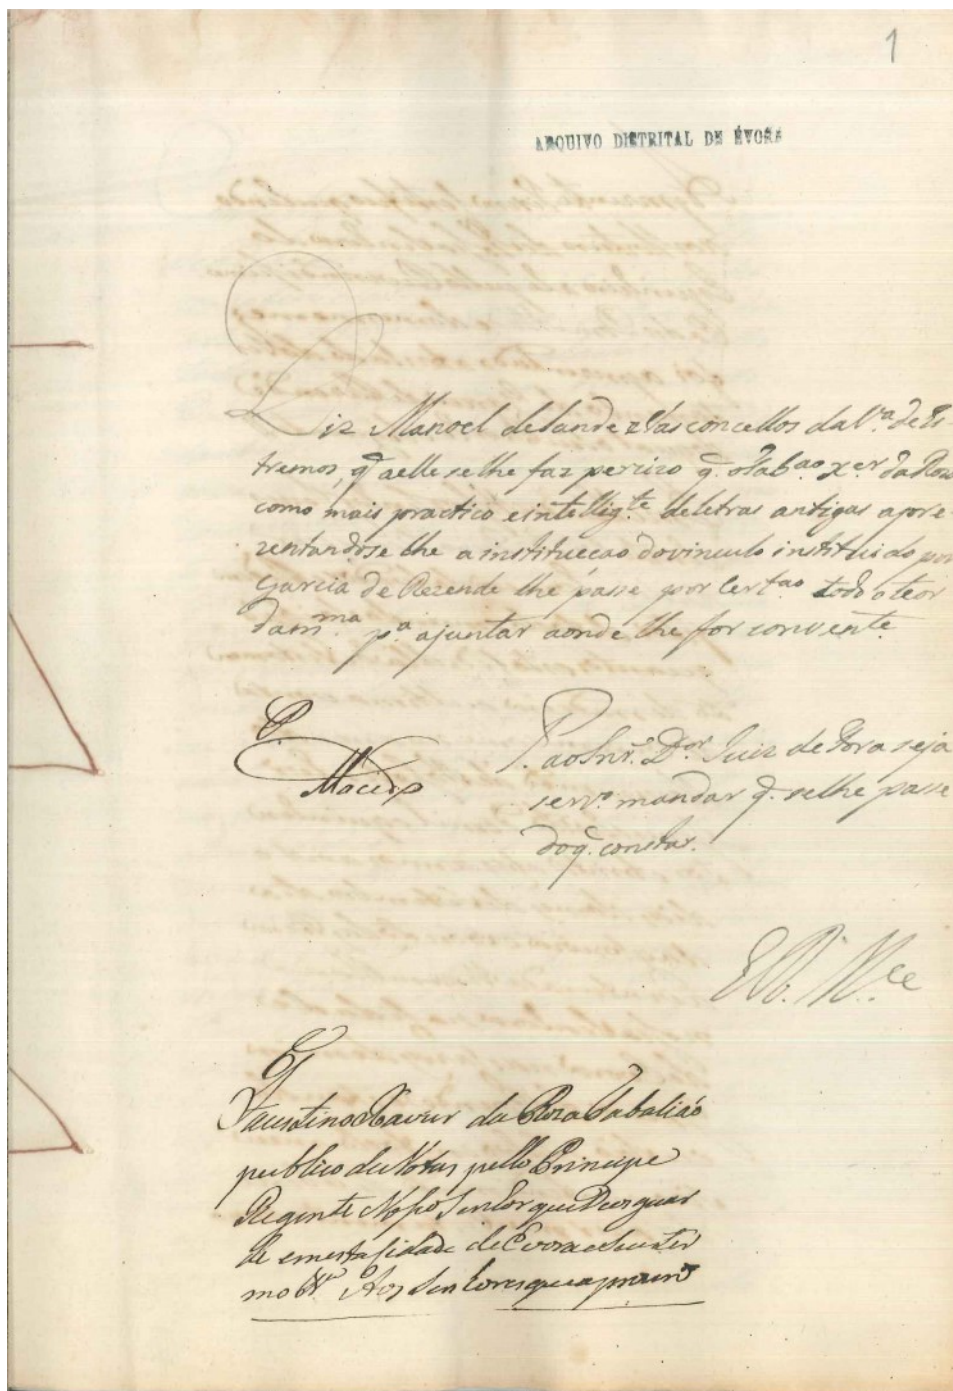 1
ARQUIVO DISTRITAL DE ÉVORA
Diz Manoel de Sande e Vasconcellos da V.ª de Es-
tremos, q̃ a elle se lhe faz percizo q̃ o Tab.ᵃᵒ X.ᵉʳ da Roza
como mais practico e intellig.ᵗᵉ de letras antigas apre-
zentandose lhe a instituecao do vinculo instituido por
Garcia de Rezende lhe passe por Cert.ᵃᵒ todo o teor
da m.ᵐᵃ p.ᵃ ajuntar aonde lhe for convente.
P.
Macedo
P. ao Snr. D.ᵒʳ Juiz de Fora seja
serv.º mandar q̃. se lhe passe
do q̃. constar.
E R. M.ᶜᵉ
Faustino Xavier da Roza Tabaliaõ
publico de Notas pello Principe
Regente Nosso Senhor que Deos guar
de em esta Cidade de Evora e seu ter
mo Aos Senhores que a prezen